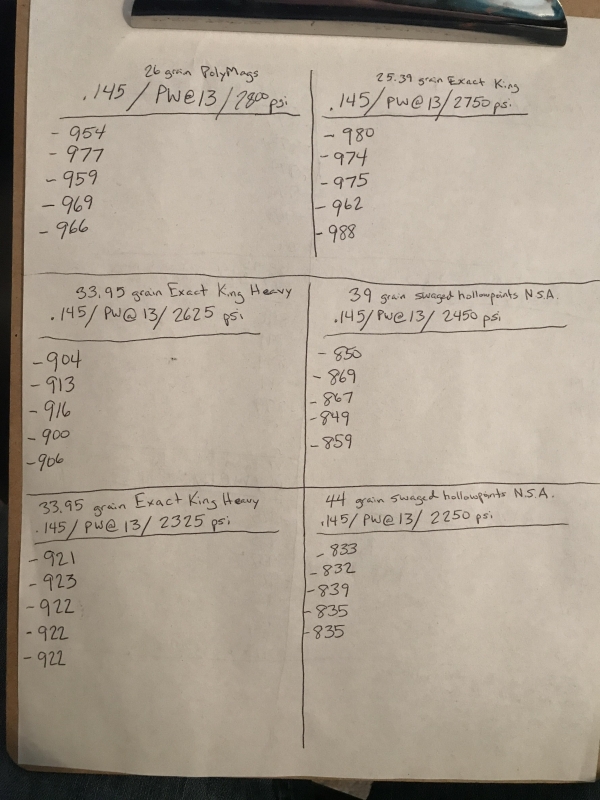 26 grain PolyMags
.145 / PW@13 / 2800 psi
- 954
- 977
- 959
- 969
- 966
25.39 grain Exact King
.145 / PW@13 / 2750 psi
- 980
- 974
- 975
- 962
- 988
33.95 grain Exact King Heavy
.145 / PW@ 13 / 2625 psi
- 904
- 913
- 916
- 900
- 906
39 grain swaged hollowpoints N.S.A.
.145 / PW@ 13 / 2450 psi
- 850
- 869
- 867
- 849
- 859
33.95 grain Exact King Heavy
.145 / PW@ 13 / 2325 psi
- 921
- 923
- 922
- 922
- 922
44 grain swaged hollowpoints N.S.A.
.145 / PW@ 13 / 2250 psi
- 833
- 832
- 839
- 835
- 835